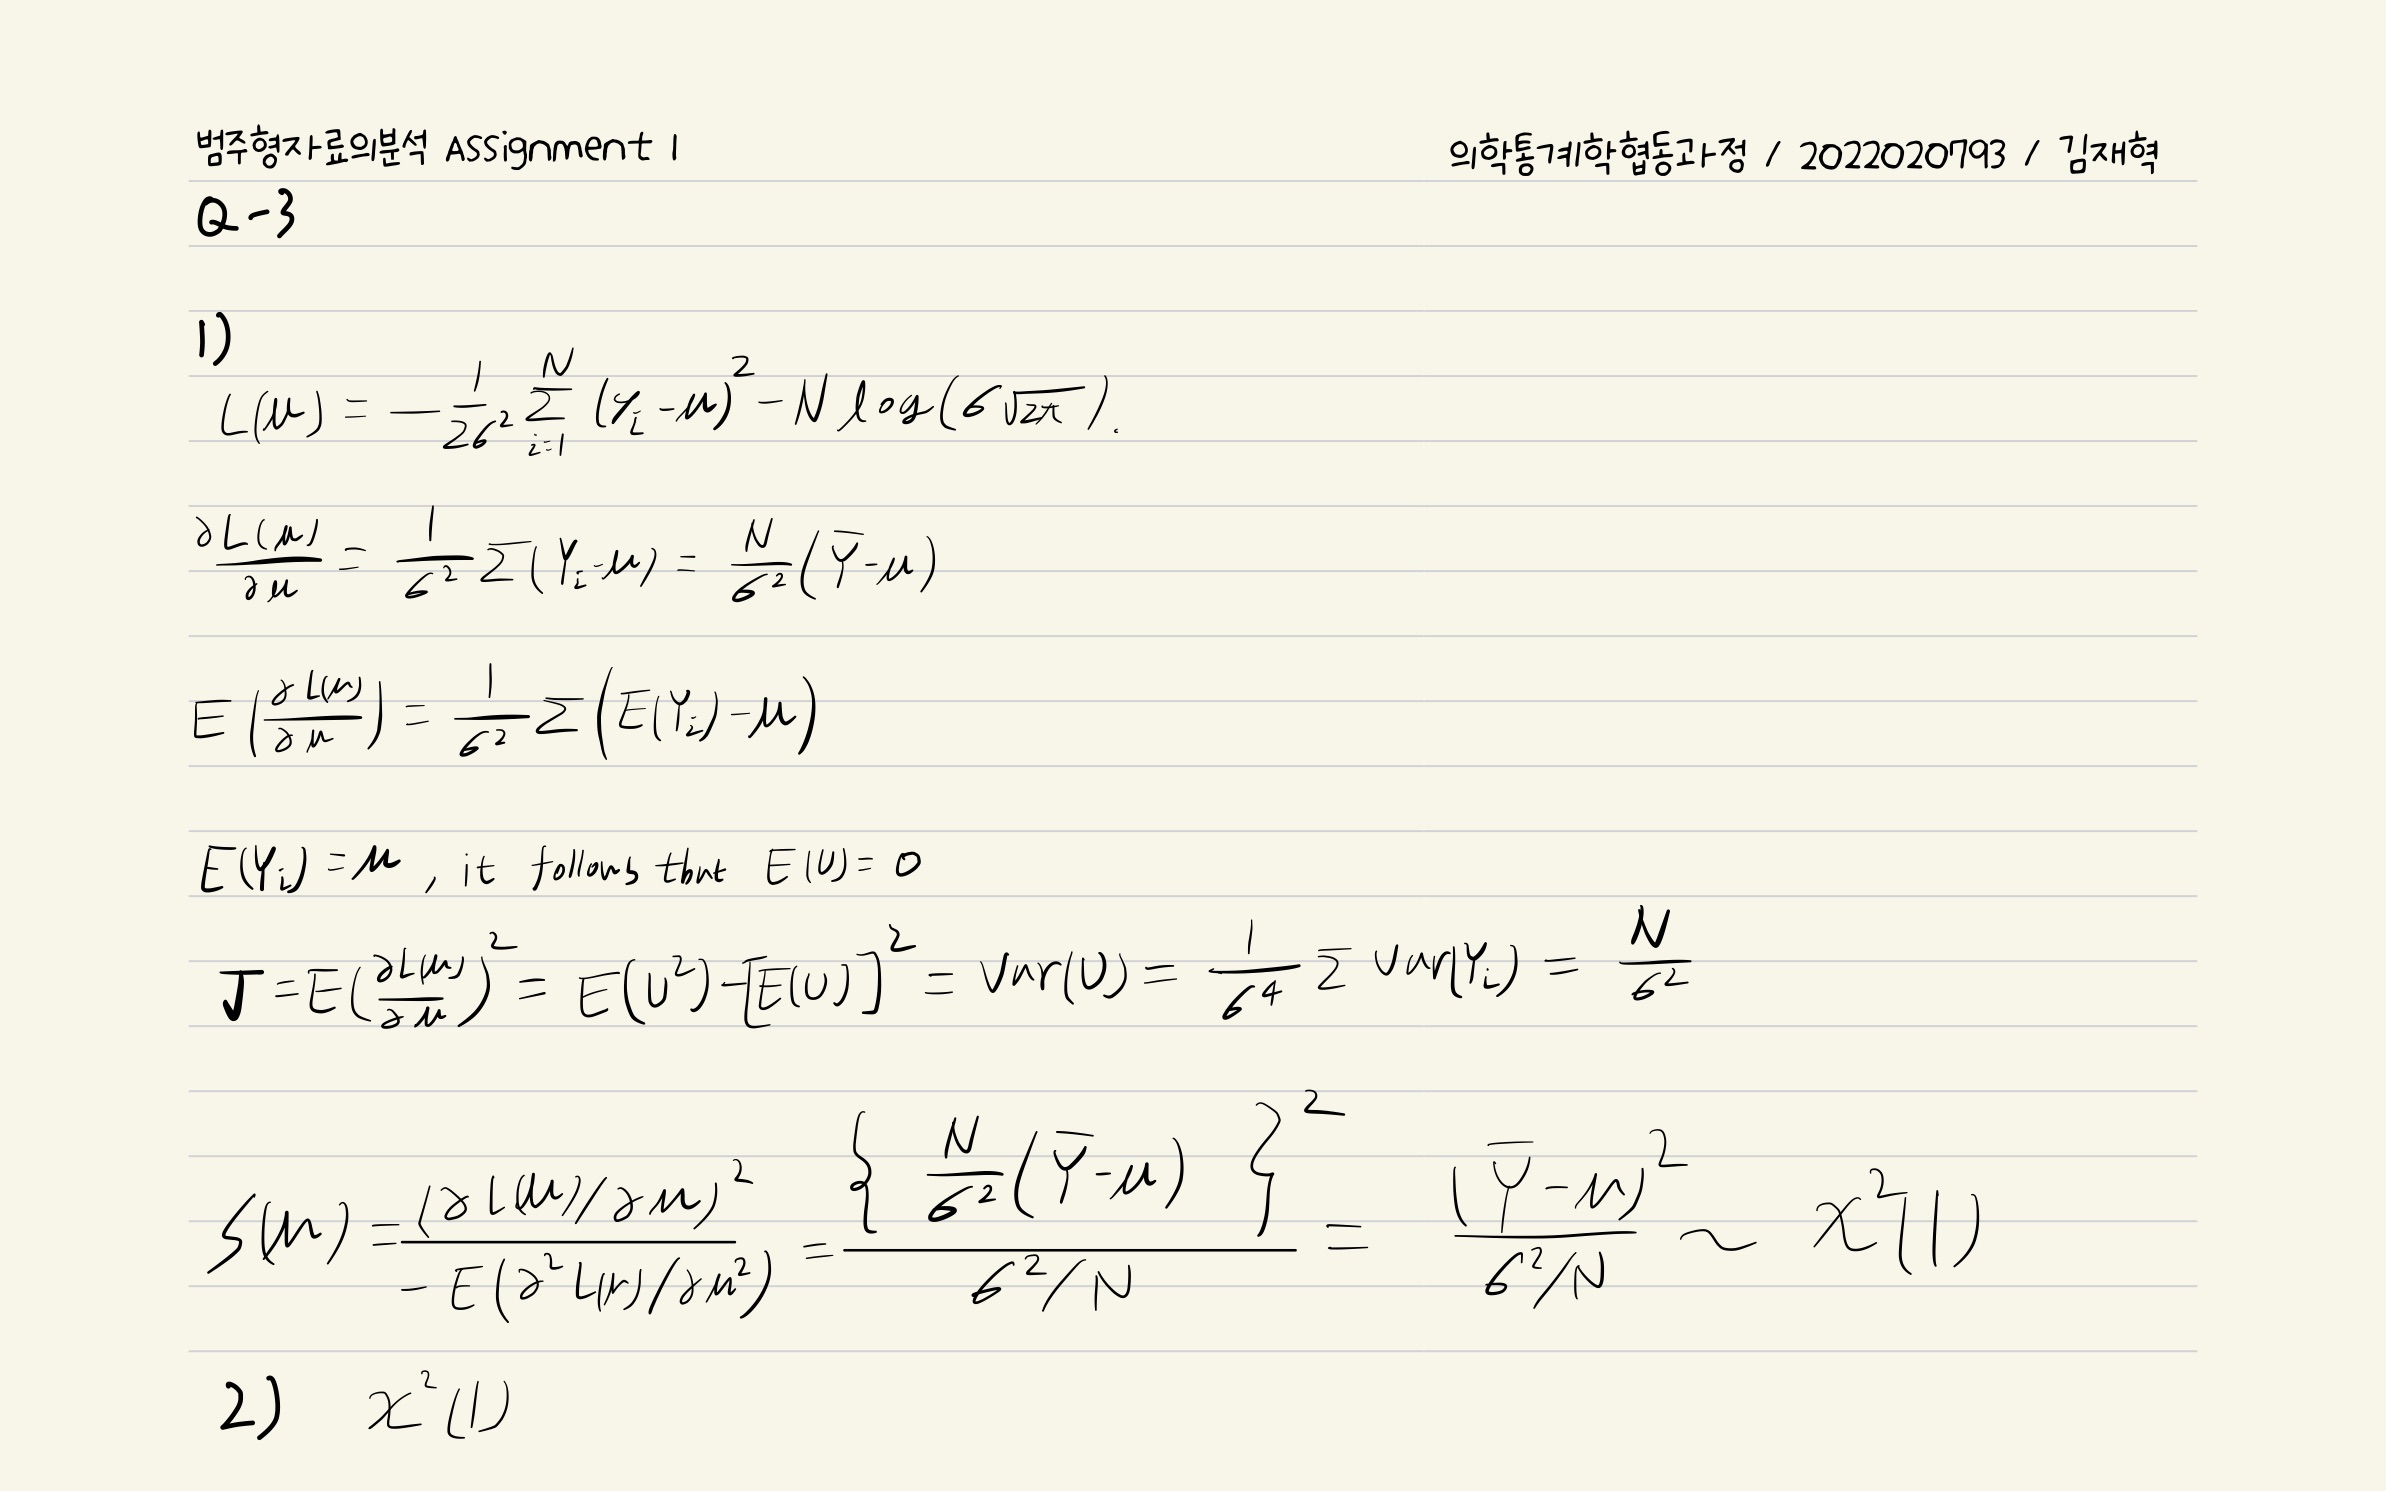 범주형자료의분석 Assignment 1
의학통계학협동과정 / 2022020793 / 김재혁
Q-3
1)
L(μ) = -1/2σ² Σ_{i=1}^{N} (y_i - μ)² - N log(σ√2π).
∂L(μ)/∂μ = 1/σ² Σ(Y_i - μ) = N/σ² (Ȳ - μ)
E(∂L(μ)/∂μ) = 1/σ² Σ(E(Y_i) - μ)
E(Y_i) = μ, it follows that E(U) = 0
J = E(∂L(μ)/∂μ)² = E(U²) - [E(U)]² = Var(U) = 1/σ⁴ Σ Var(Y_i) = N/σ²
S(μ) = (∂L(μ)/∂μ)² / -E(∂²L(μ)/∂μ²) = {N/σ² (Ȳ - μ)}² / σ²/N = (Ȳ - μ)² / σ²/N ~ χ²(1)
2) χ²(1)